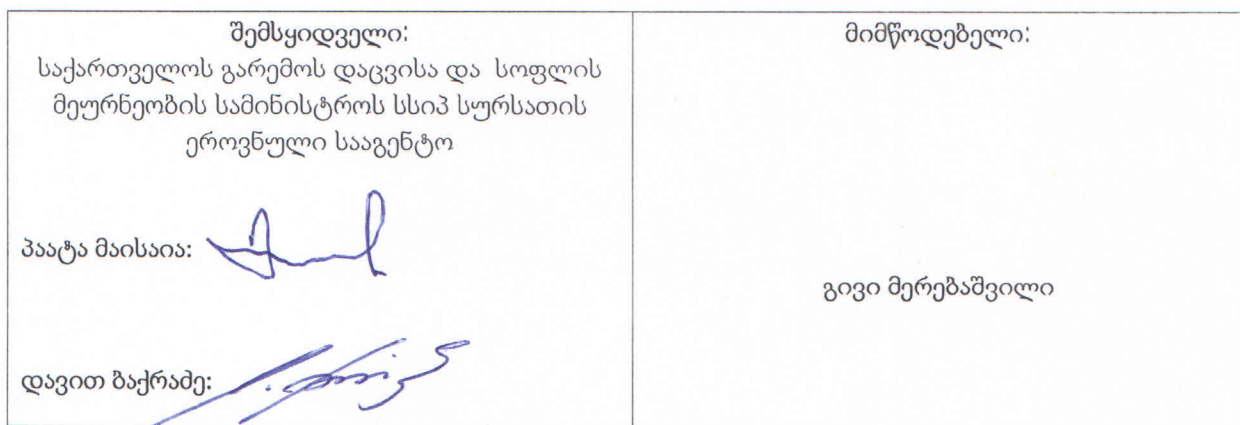 შემსყიდველი:
საქართველოს გარემოს დაცვისა და სოფლის
მეურნეობის სამინისტროს სსიპ სურსათის
ეროვნული სააგენტო
პაატა მაისაია:
დავით ბაქრაძე:
მიმწოდებელი:
გივი მერებაშვილი